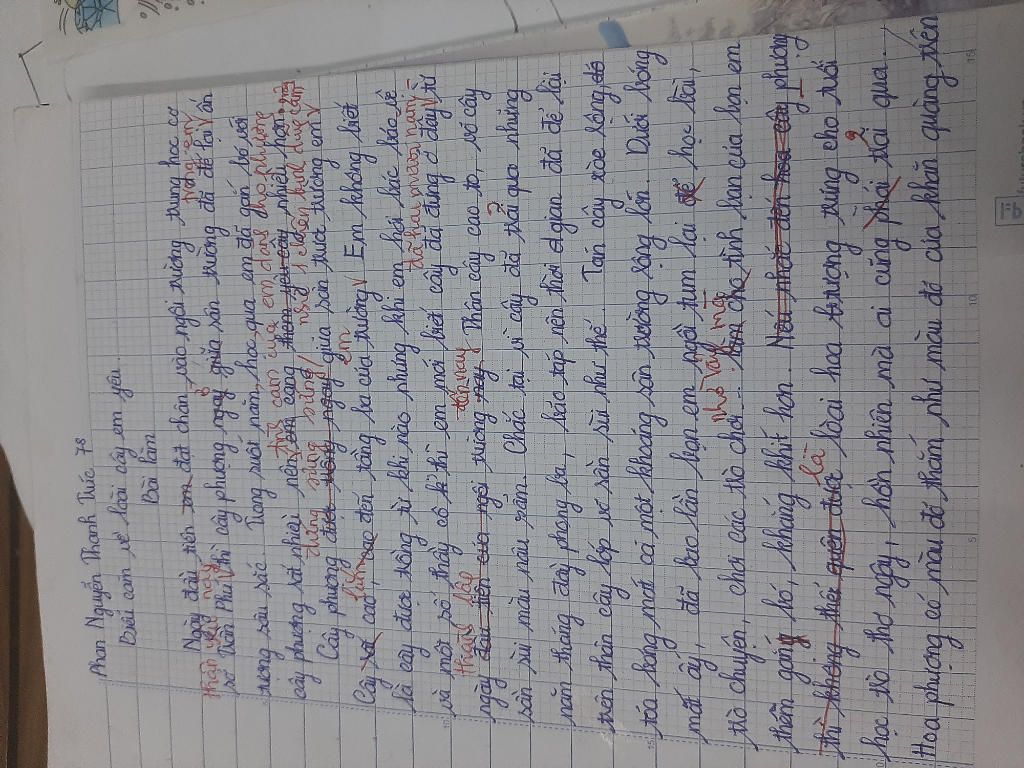 Phan Nguyễn Thanh Trúc 7/8
Biểu cảm về loài cây em yêu.
Bài làm
Ngày đầu tiên em đặt chân vào ngôi trường trung học cơ
thân yêu này trong em
sở Trần Phú thì cây phượng ngay ở giữa sân trường đã để lại ấn
tượng sâu sắc. Trong suốt năm học qua em đã gắn bó với
tình cảm của em dành cho phượng
cây phượng rất nhiều nên em càng thêm yêu cây nhiều hơn
đứng sừng sững
Cây phượng được trồng ngay giữa sân trước trường em
lên em
Cây rất cao, cao đến tầng ba của trường. Em không biết
là cây được trồng từ khi nào nhưng khi em hỏi bác bảo vệ
và một số thầy cô kì thì em mới biết cây đã đứng ở đây từ
thành lập đến nay đã hai mươi năm
ngày đầu tiên của ngôi trường này Thân cây cao to, vỏ cây
sần sùi màu nâu xám. Chắc tại vì cây đã trãi qua những
năm tháng đầy phong ba, bão táp nên thời gian đã để lại
trên thân cây lớp vỏ sần sùi như thế. Tán cây xòe rộng
tỏa bóng mát cả một khoảng sân trường rộng lớn. Dưới bóng
mát ấy, đã bao lần bạn em ngồi tụm lại để học bài,
nhờ vậy mà
trò chuyện, chơi các trò chơi... làm cho tình bạn của bạn em
thêm gắn bó, khăng khít hơn. Nếu nhắc đến hoa cây phượng
là
thì không thể quên được loài hoa tượng trưng cho tuổi
học trò thơ ngây, hồn nhiên mà ai cũng phải trãi qua.
Hoa phượng có màu đỏ thắm như màu đỏ của khăn quàng trên